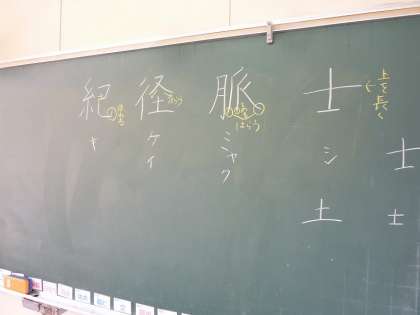 士
上を長く
シ
土
士
士
脈
はらう
ミャク
径
はらう
ケイ
紀
キ